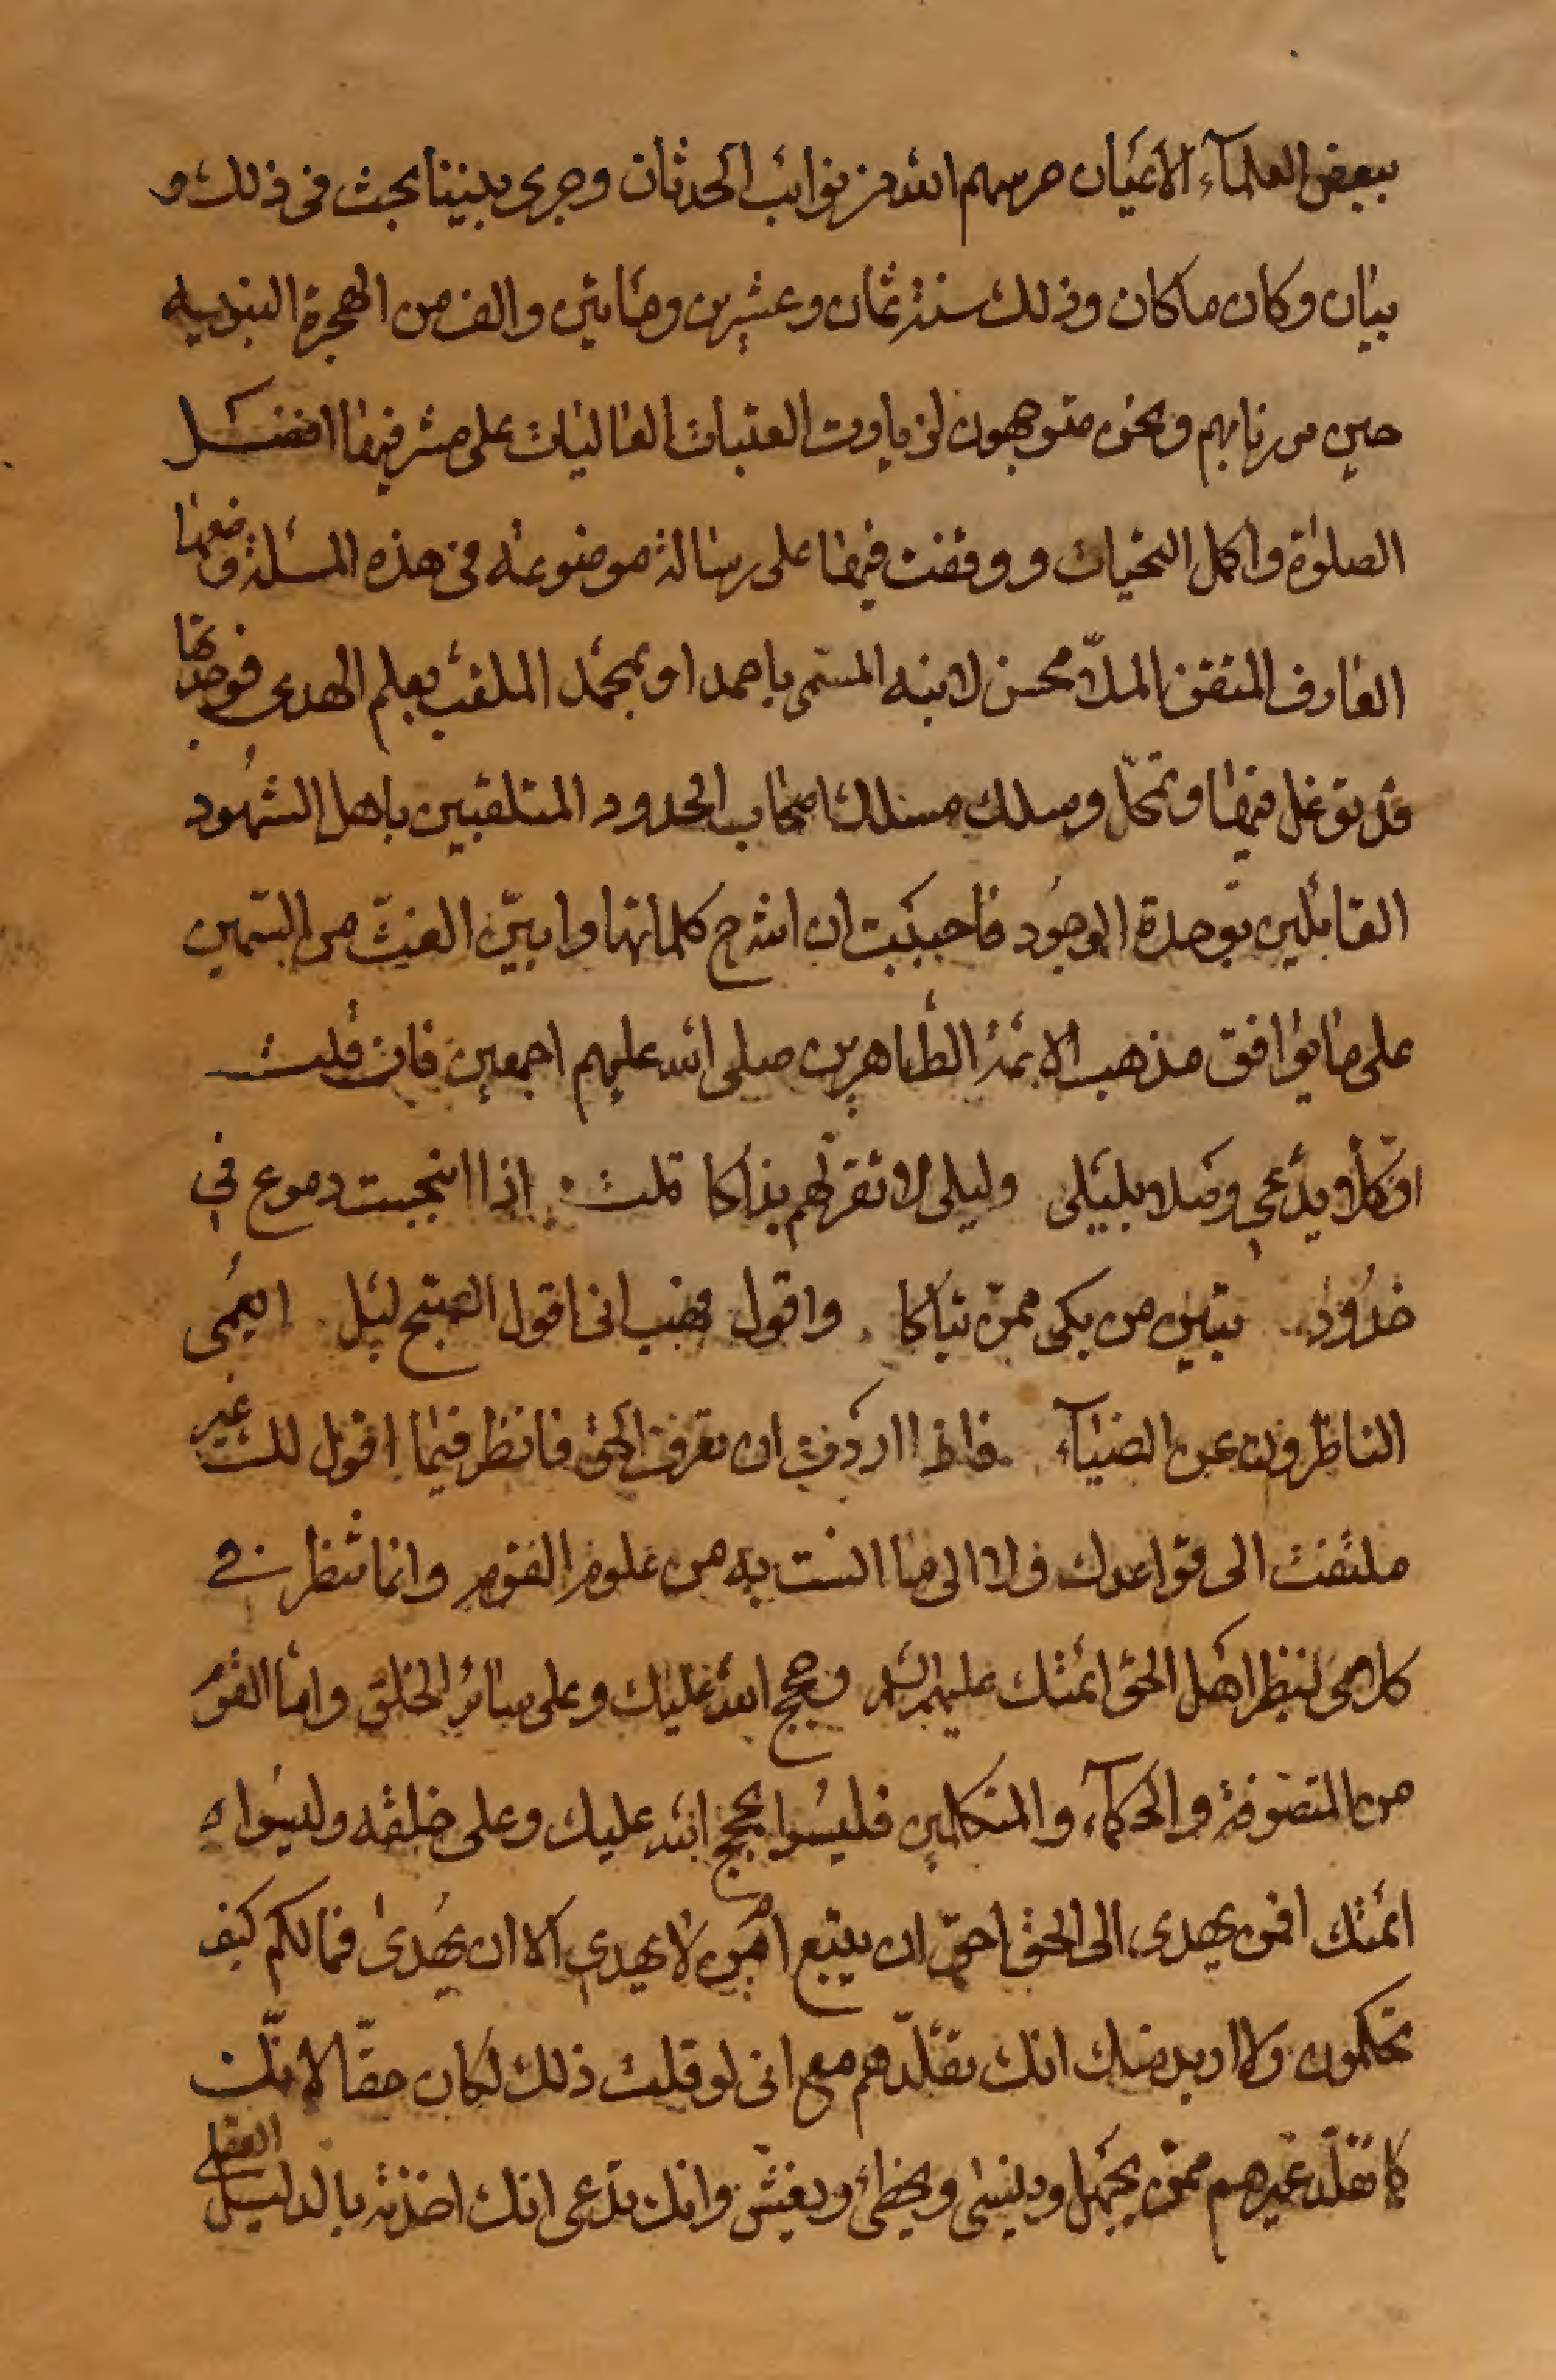 ببعض العلمآء الأعيان حرسهم الله من نوائب الحدثان وجرى بيننا بحث فى ذلك و
بيان وكان ما كان وذلك سنة ثمان وعشرين ومائتين والف من الهجرة النبويه
حين مررنا بهم ونحن متوجهون لزيارت العتبات العاليات على مشرفيها افضل
الصلوة واكمل التحيات ووقفت فيها على رسالة موضوعة فى هذه المسئلة وضعها
العارف المتقن الملّا محسن لابنه المسمى باحمد او بمحمد الملقب بعلم الهدى فوجدتها
قد توغل فيها وتمحّل وسلك مسلك اصحاب الحدود المتلقبين باهل الشهُود
القائلين بوحدة الوجُود فاحببت ان اشرح كلماتها وابيّن الغثّ من السّمين
على ما يوافق مذهب الائمة الطاهرين صلى الله عليهم اجمعين فان قلت
وكلّ يدّعى وصلا بليلى وليلى لا تقرّ لهم بذاكا قلت اذا انبجست دموع فى
خدُود تبيّن من بكى ممّن تباكا واقول فهب انى اقول الصبح ليل ايعمُى
الناظرون عن الضيآء فاذا اردت ان تعرف الحق فانظر فيما اقول لك غير
ملتفت الى قواعدك ولا الى ما انست به من علوم القوم وانما تنظر فى
كلامى بنظر اهل الحق ائمتك عليهم السلم فهم حجج الله عليك وعلى سائر الخلق واما القوم
من المتصوفة والحكمآء والمتكلمين فليسوا بحجج الله عليك وعلى خلقه وليسوا
ائمتك افمن يهدى الى الحق احقّ ان يتبع امّن لا يهدى الا ان يُهدى فما لكم كيف
تحكمون ولا اريد منك انك تقلّدهم مع انى لو قلت ذلك لكان حقّا لانّك
كما تقلّد غيرهم ممّن يجهل وينسى ويخطئ ويغشّ وانك تدّعى انك اخذته بالدليل العقلى